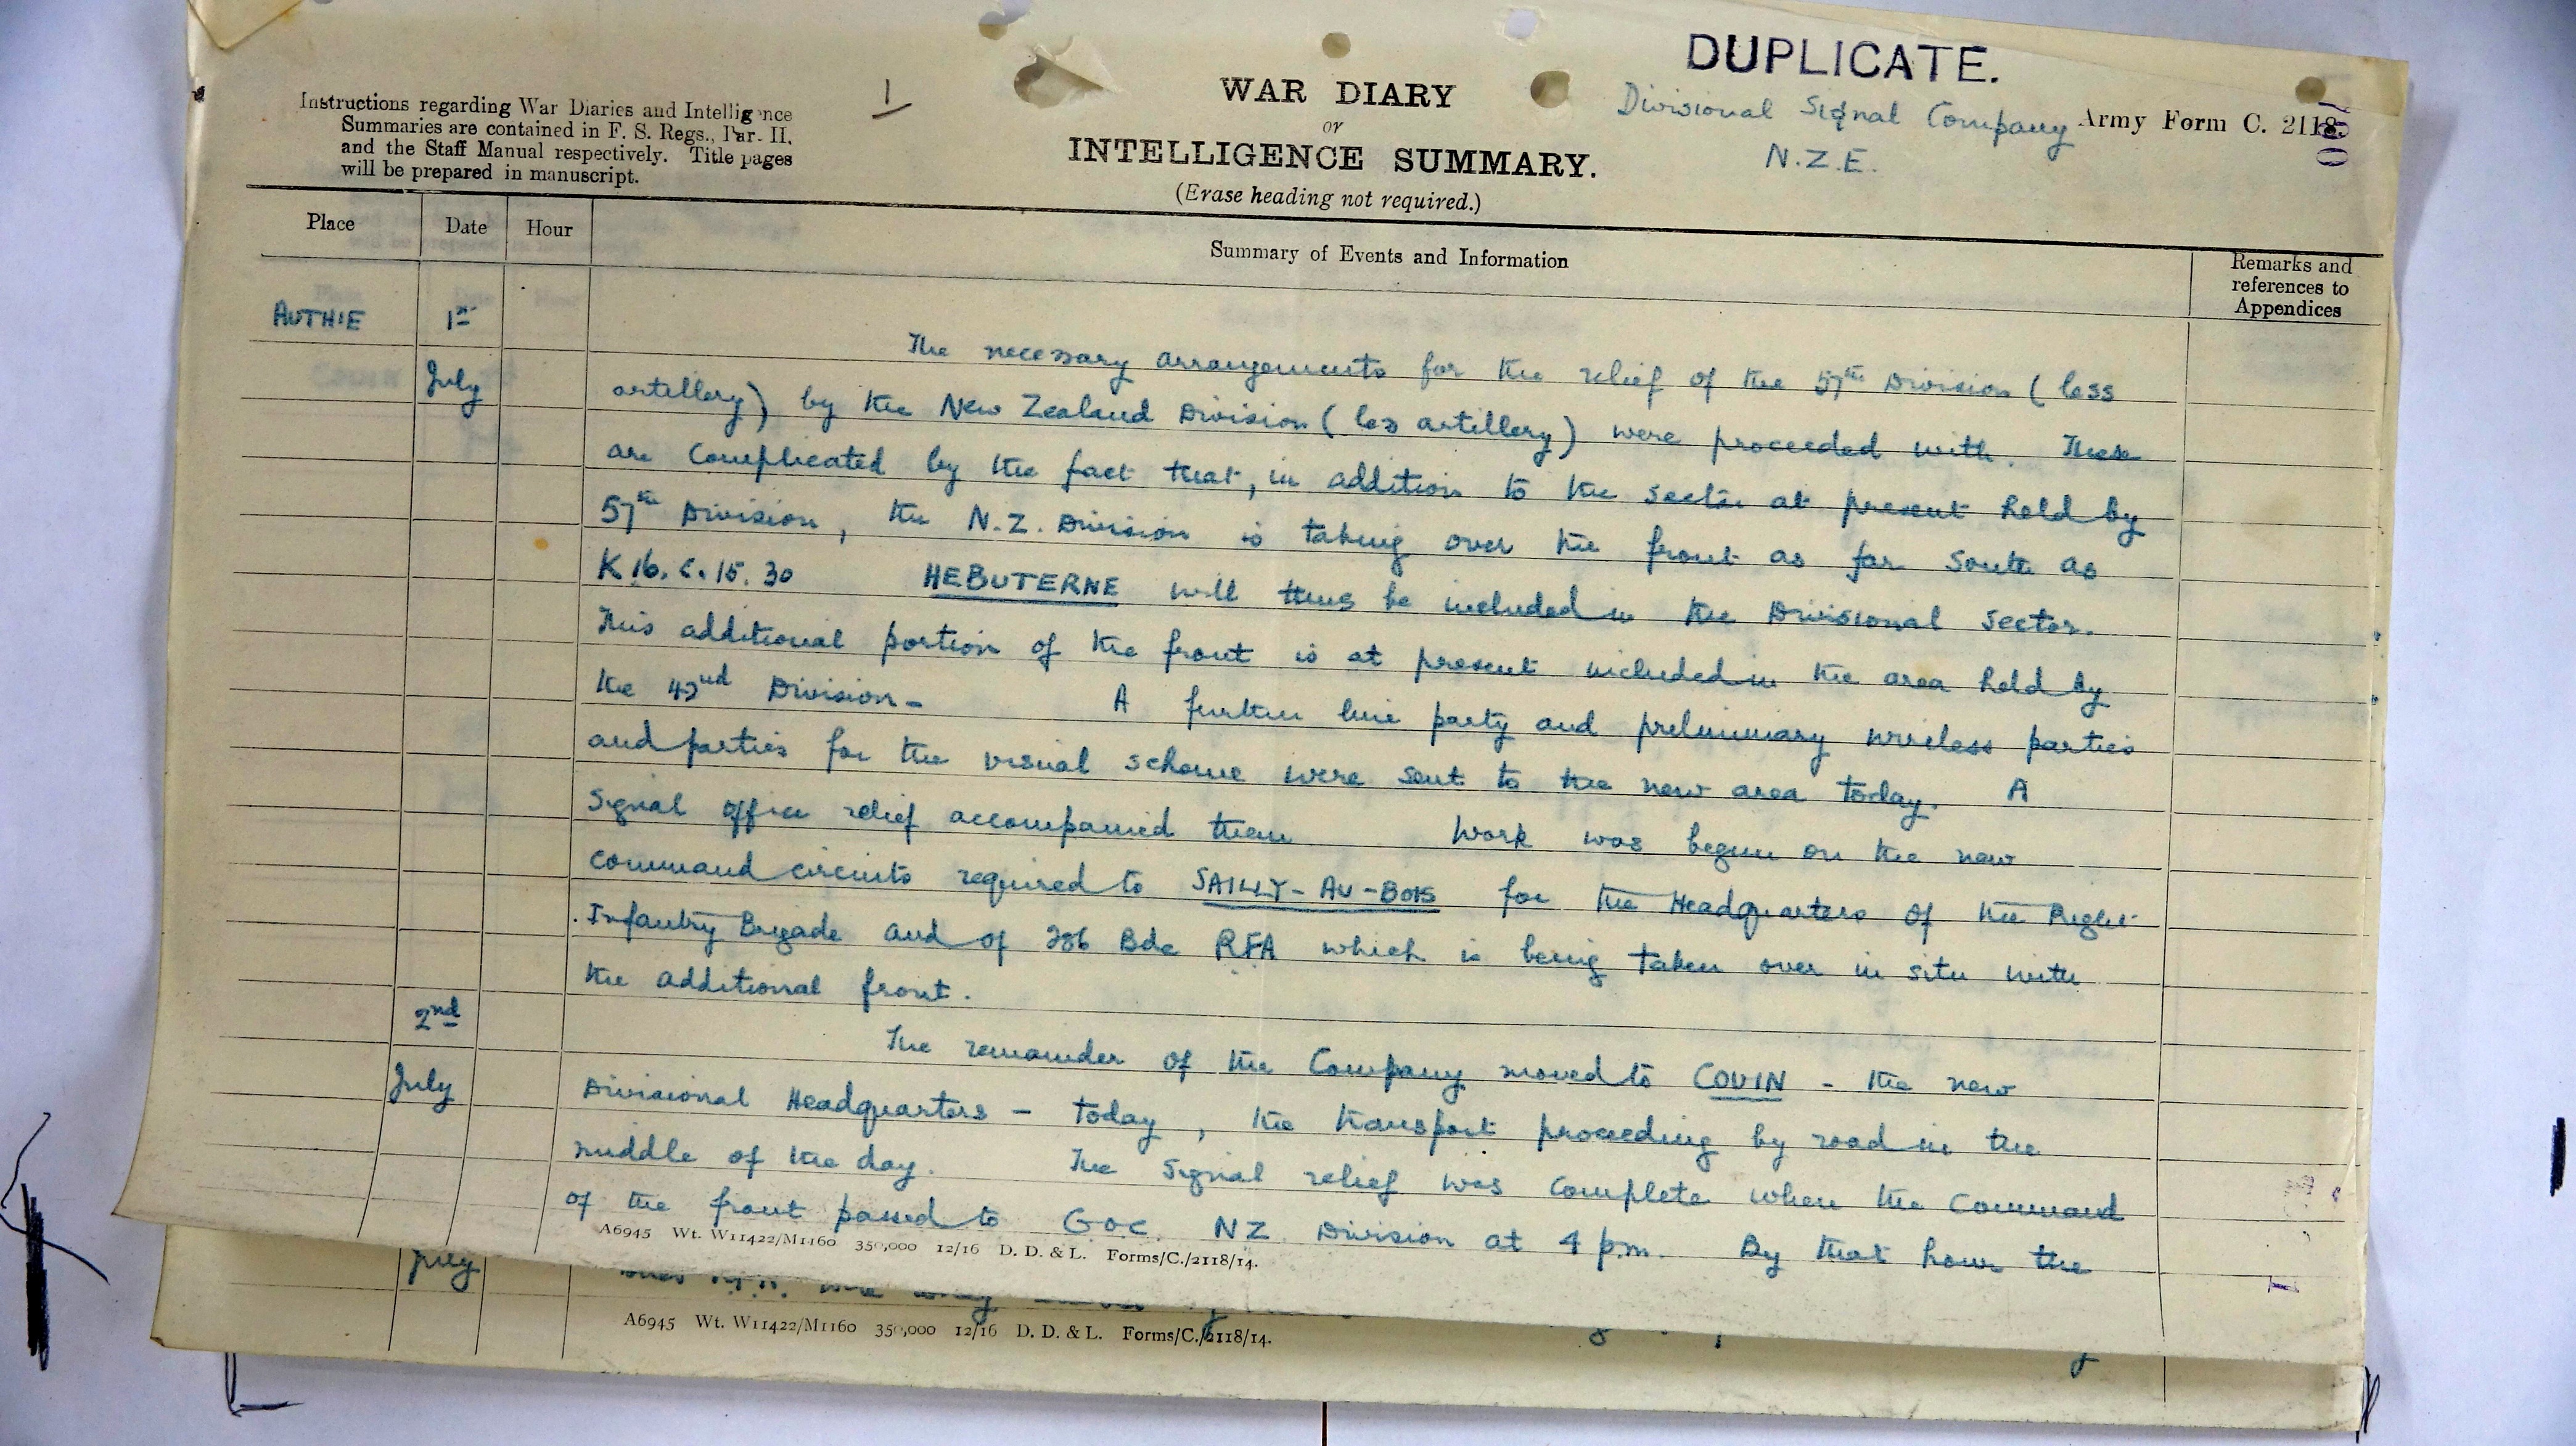 DUPLICATE.
Instructions regarding War Diaries and Intelligence
Summaries are contained in F. S. Regs., Par. II.
and the Staff Manual respectively. Title pages
will be prepared in manuscript.
1
WAR DIARY
or
INTELLIGENCE SUMMARY.
(Erase heading not required.)
Divisional Signal Company
N.Z.E.
Army Form C. 2118.
Place
Date
Hour
Summary of Events and Information
Remarks and
references to
Appendices
AUTHIE
1st
July
The necessary arrangements for the relief of the 57th Division (less
artillery) by the New Zealand Division (less artillery) were proceeded with. These
are complicated by the fact that, in addition to the sector at present held by
57th Division, the N.Z. Division is taking over the front as far South as
K16.c.15.30 HEBUTERNE will thus be included in the Divisional Sector.
This additional portion of the front is at present included in the area held by
the 42nd Division - A further line party and preliminary wireless parties
and parties for the visual scheme were sent to the new area today. A
Signal office relief accompanied them Work was begun on the new
command circuits required to SAILLY-AU-BOIS for the Headquarters of the Right
Infantry Brigade and of 286 Bde RFA which is being taken over in situ with
the additional front.
2nd
July
The remainder of the Company moved to COUIN - the new
Divisional Headquarters - today, the transport proceeding by road in the
middle of the day. The Signal relief was complete when the Command
of the front passed to G.O.C. NZ Division at 4 p.m. By that hour the
A6945 Wt. W11422/M1160 350,000 12/16 D. D. & L. Forms/C./2118/14.
July
A6945 Wt. W11422/M1160 350,000 12/16 D. D. & L. Forms/C./2118/14.